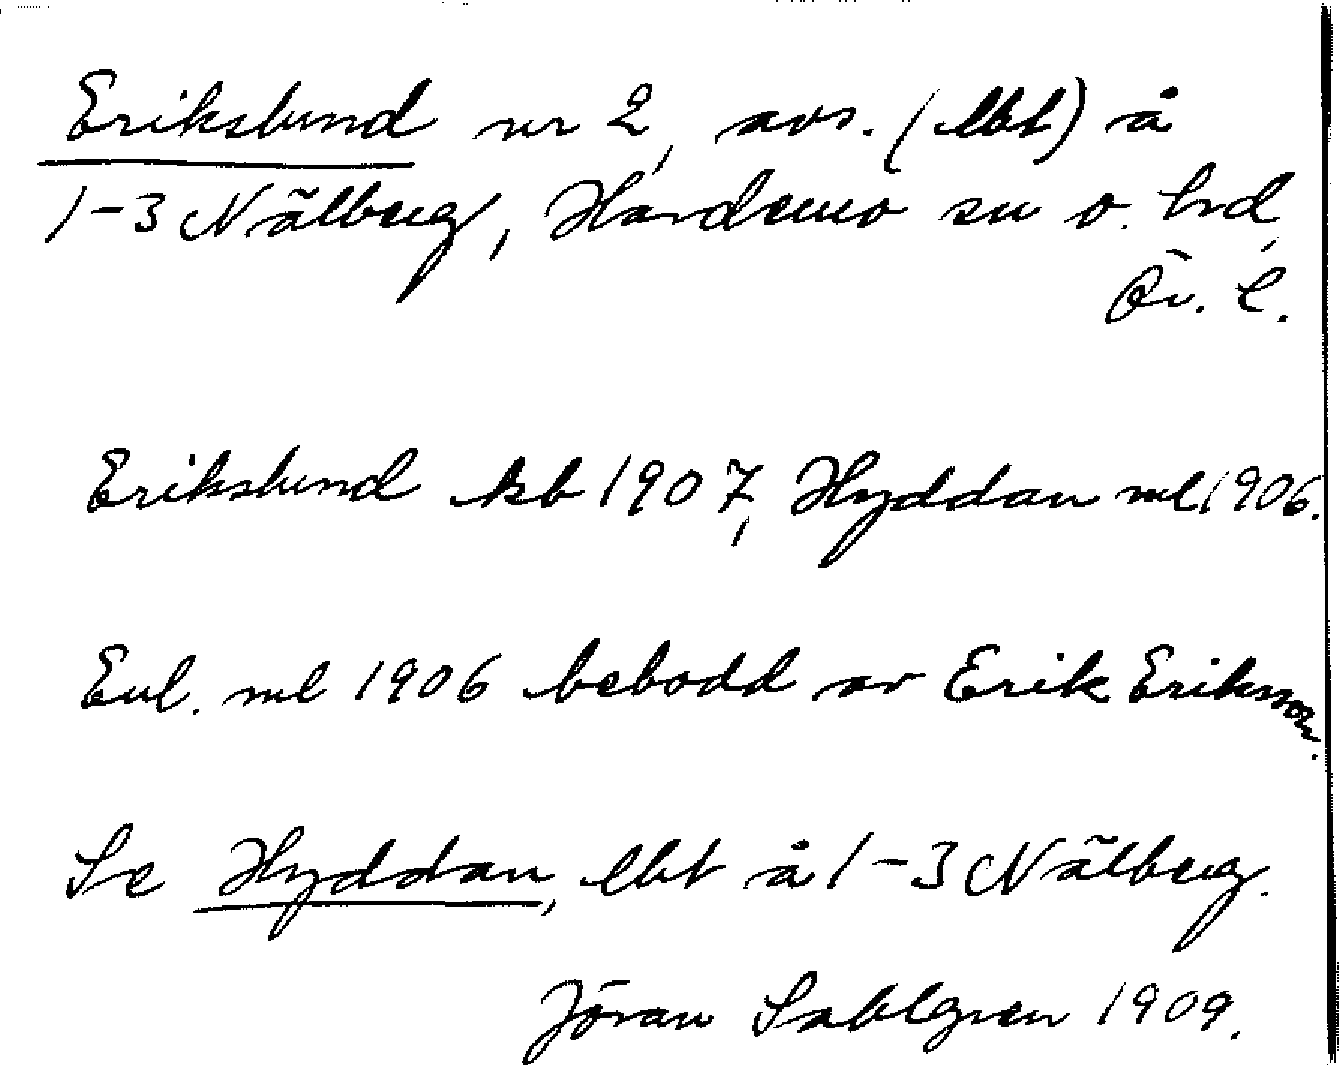 Erikslund nr 2, avs. (lht) å
1-3 Nälberg, Hardemo sn o. hd,
Ör. l.
Erikslund kb 1907, Hyddan ml 1906.
Enl. ml 1906 bebodd av Erik Eriksson.
Se Hyddan, lht å 1-3 Nälberg.
Jöran Sahlgren 1909.